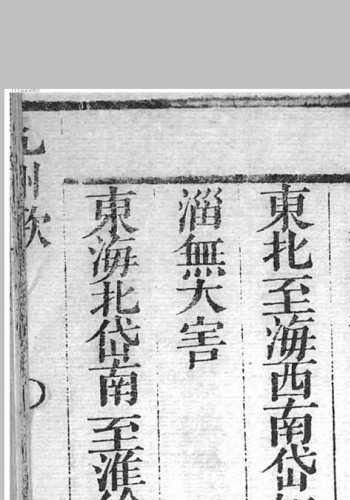 東北至海西南岱
淄無大害
東海北岱南至淮
九州歌